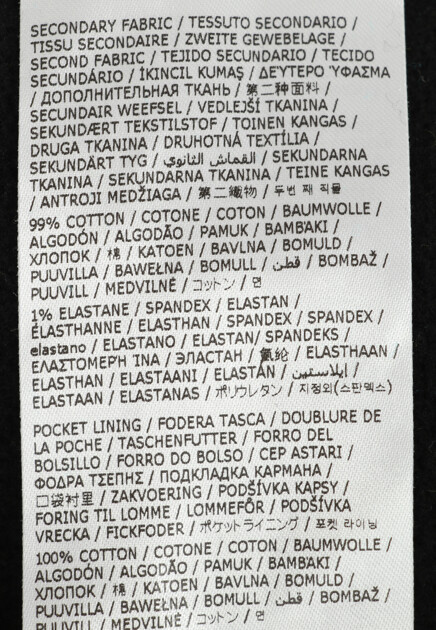 SECONDARY FABRIC / TESSUTO SECONDARIO /
TISSU SECONDAIRE / ZWEITE GEWEBELAGE /
SECOND FABRIC / TEJIDO SECUNDARIO / TECIDO
SECUNDÁRIO / İKINCIL KUMAŞ / ΔΕΥΤΕΡΟ ΎΦΑΣΜΑ
/ ДОПОЛНИТЕЛЬНАЯ ТКАНЬ / 第二种面料 /
SECUNDAIR WEEFSEL / VEDLEJŠÍ TKANINA /
SEKUNDÆRT TEKSTILSTOF / TOINEN KANGAS /
DRUGA TKANINA / DRUHOTNÁ TEXTÍLIA /
SEKUNDÄRT TYG / القماش الثانوي / SEKUNDARNA
TKANINA / SEKUNDARNA TKANINA / TEINE KANGAS
/ ANTROJI MEDŽIAGA / 第二織物 / 두번 째 직물
99% COTTON / COTONE / COTON / BAUMWOLLE /
ALGODÓN / ALGODÃO / PAMUK / ΒΑΜΒΆΚΙ /
ХЛОПОК / 棉 / KATOEN / BAVLNA / BOMULD /
PUUVILLA / BAWEŁNA / BOMULL / قطن / BOMBAŽ /
PUUVILL / MEDVILNĖ / コットン / 면
1% ELASTANE / SPANDEX / ELASTAN /
ÉLASTHANNE / ELASTHAN / SPANDEX / SPANDEX /
elastano / ELASTANO / ELASTAN / SPANDEKS /
ΕΛΑΣΤΟΜΕΡΉ ΊΝΑ / ЭЛАСТАН / 氨纶 / ELASTHAAN /
ELASTHAN / ELASTAANI / ELASTÁN / ايلاستين /
ELASTAAN / ELASTANAS / ポリウレタン / 지정외(스판덱스)
POCKET LINING / FODERA TASCA / DOUBLURE DE
LA POCHE / TASCHENFUTTER / FORRO DEL
BOLSILLO / FORRO DO BOLSO / CEP ASTARI /
ΦΟΔΡΑ ΤΣΕΠΗΣ / ПОДКЛАДКА КАРМАНА /
口袋衬里 / ZAKVOERING / PODŠÍVKA KAPSY /
FORING TIL LOMME / LOMMEFÔR / PODŠÍVKA
VRECKA / FICKFODER / ポケットライニング / 포켓 라이닝
100% COTTON / COTONE / COTON / BAUMWOLLE /
ALGODÓN / ALGODÃO / PAMUK / ΒΑΜΒΆΚΙ /
ХЛОПОК / 棉 / KATOEN / BAVLNA / BOMULD /
PUUVILLA / BAWEŁNA / BOMULL / قطن / BOMBAŽ /
PUUVILL / MEDVILNĖ / コットン / 면